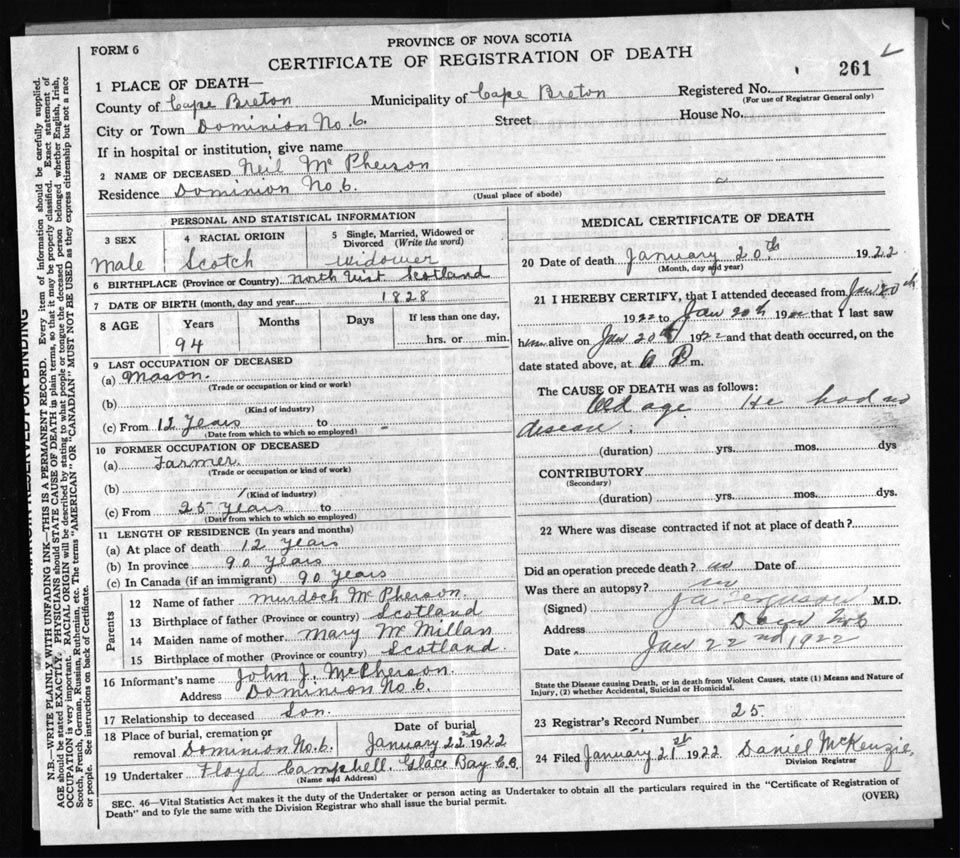 PROVINCE OF NOVA SCOTIA
FORM 6
CERTIFICATE OF REGISTRATION OF DEATH
261
1 PLACE OF DEATH—
Registered No.
(For use of Registrar General only)
County of Cape Breton Municipality of Cape Breton
City or Town Dominion No. 6. Street House No.
If in hospital or institution, give name
2 NAME OF DECEASED Neil McPherson
Residence Dominion No 6.
(Usual place of abode)
PERSONAL AND STATISTICAL INFORMATION
3 SEX 4 RACIAL ORIGIN 5 Single, Married, Widowed or Divorced (Write the word)
Male Scotch Widower
6 BIRTHPLACE (Province or Country) North Uist Scotland
7 DATE OF BIRTH (month, day and year) 1828
8 AGE Years Months Days If less than one day,
94 hrs. or min.
9 LAST OCCUPATION OF DECEASED
(a) Mason.
(Trade or occupation or kind or work)
(b)
(Kind of industry)
(c) From 12 Years to -
(Date from which to which so employed)
10 FORMER OCCUPATION OF DECEASED
(a) Farmer.
(Trade or occupation or kind of work)
(b)
(Kind of industry)
(c) From 25 Years to
(Date from which to which so employed)
11 LENGTH OF RESIDENCE (In years and months)
(a) At place of death 12 Years
(b) In province 90 Years
(c) In Canada (if an immigrant) 90 Years
Parents
12 Name of father Murdoch McPherson.
13 Birthplace of father (Province or country) Scotland
14 Maiden name of mother Mary McMillan
15 Birthplace of mother (Province or country) Scotland.
16 Informant's name John J. McPherson.
Address Dominion No 6.
17 Relationship to deceased Son.
18 Place of burial, cremation or removal Dominion No. 6. Date of burial January 22nd 1922
19 Undertaker Floyd Campbell. Glace Bay C.B.
(Name and Address)
MEDICAL CERTIFICATE OF DEATH
20 Date of death January 20th 1922
(Month, day and year)
21 I HEREBY CERTIFY, that I attended deceased from Jan 20th
1922 to Jan 20th 1922 that I last saw
him alive on Jan 20th 1922 and that death occurred, on the
date stated above, at P m.
The CAUSE OF DEATH was as follows:
Old age He had no
disease.
(duration) yrs. mos. dys
CONTRIBUTORY
(Secondary)
(duration) yrs. mos. dys.
22 Where was disease contracted if not at place of death?
Did an operation precede death? no Date of
Was there an autopsy? no
(Signed) Ja Ferguson M.D.
Address
Date Jan 22nd 1922
State the Disease causing Death, or in death from Violent Causes, state (1) Means and Nature of
Injury, (2) whether Accidental, Suicidal or Homicidal.
23 Registrar's Record Number 25
24 Filed January 21st 1922 Daniel McKenzie,
Division Registrar
SEC. 46—Vital Statistics Act makes it the duty of the Undertaker or person acting as Undertaker to obtain all the particulars required in the "Certificate of Registration of
Death" and to fyle the same with the Division Registrar who shall issue the burial permit.
(OVER)
RESERVED FOR BINDING
N.B.—WRITE PLAINLY WITH UNFADING INK—THIS IS A PERMANENT RECORD. Every item of information should be carefully supplied.
AGE should be stated EXACTLY. PHYSICIANS should STATE CAUSE OF DEATH in plain terms, so that it may be properly classified. Exact statement of
OCCUPATION is very important. RACIAL ORIGIN will be described by stating to what people or tongue the deceased person belonged whether English, Irish,
Scotch, French, German, Russian, Ruthenian, etc. The terms "AMERICAN" OR "CANADIAN" MUST NOT BE USED as they express citizenship but not a race
or people. See instructions on back of Certificate.